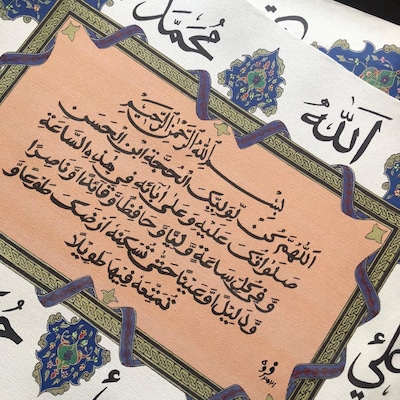 مُحَمَّد
اَللّٰهُ
بِسْمِ اللهِ الرَّحْمٰنِ الرَّحِيمِ
اَللّٰهُمَّ كُنْ لِوَلِيِّكَ الْحُجَّةِ ابْنِ الْحَسَنِ
صَلَوَاتُكَ عَلَيْهِ وَعَلىٰ آبَائِهِ فِي هٰذِهِ السَّاعَةِ
وَفِي كُلِّ سَاعَةٍ وَلِيًّا وَحَافِظًا وَقَائِدًا وَنَاصِرًا
وَدَلِيلًا وَعَيْنًا حَتّٰى تُسْكِنَهُ أَرْضَكَ طَوْعًا وَ
تُمَتِّعَهُ فِيهَا طَوِيلًا
علي